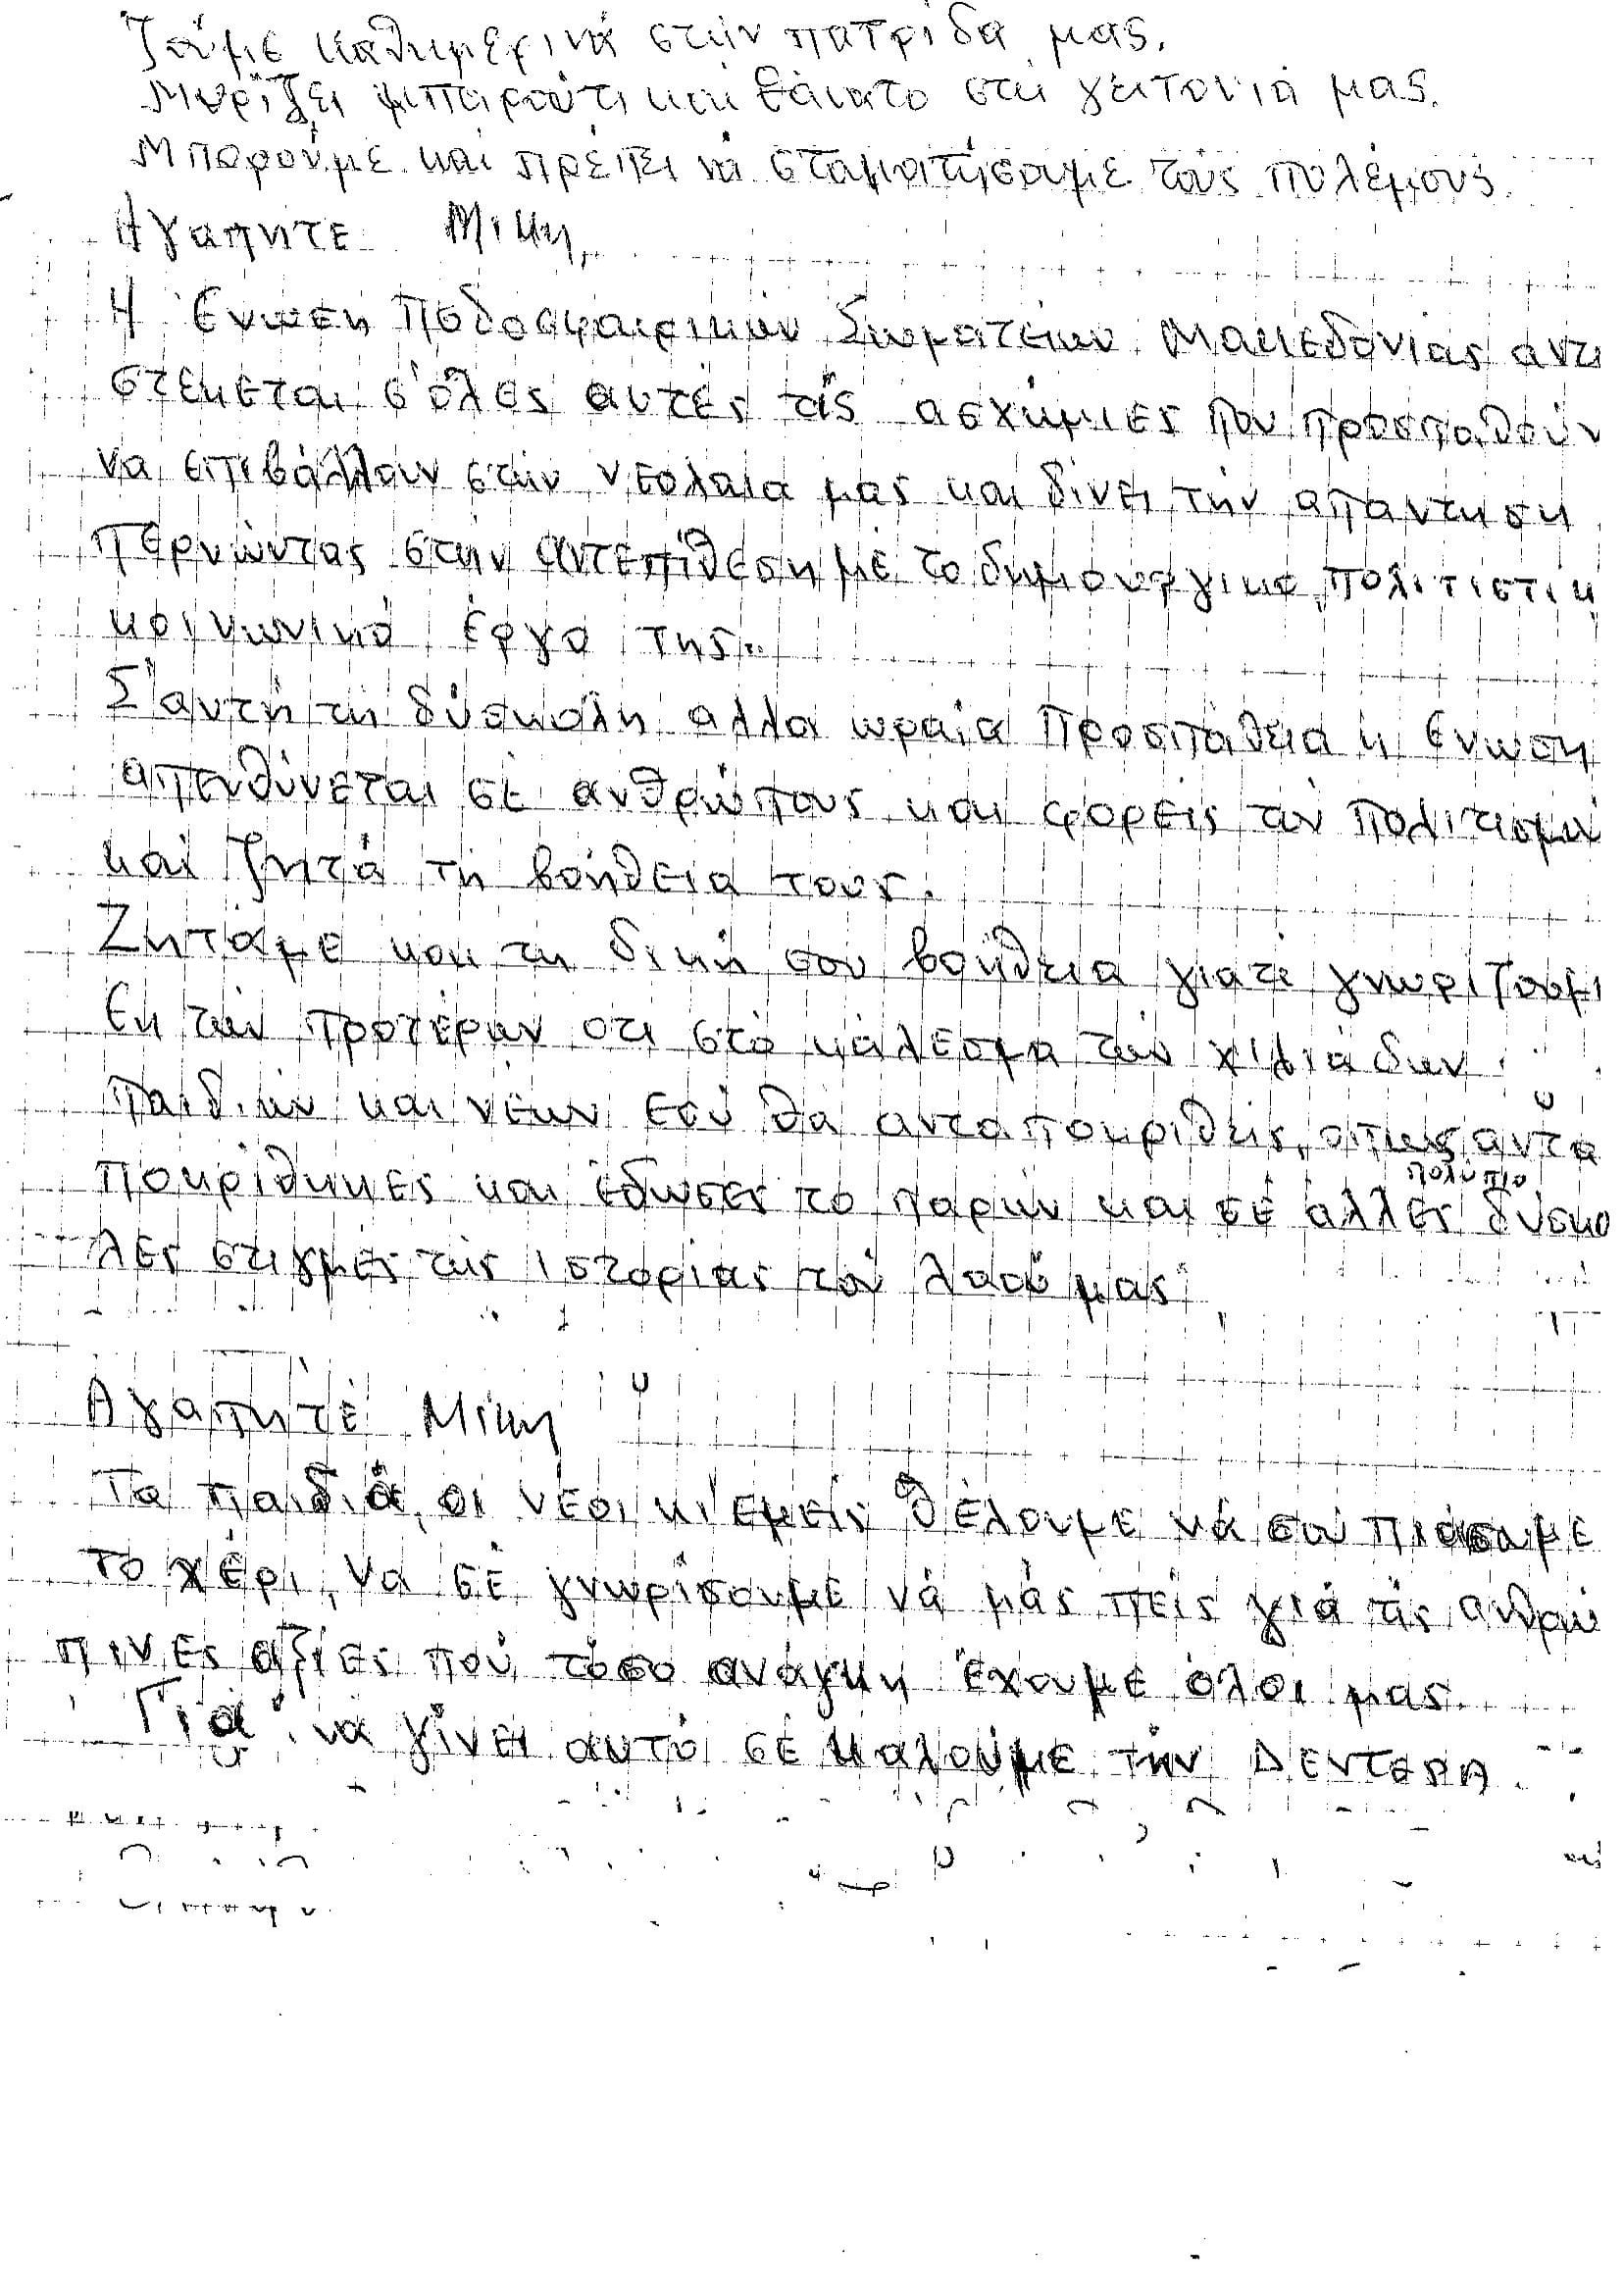 ζούμε καθημερινά στήν πατρίδα μας.
Μυρίζει μπαρούτι καί θάνατο στή γειτονιά μας.
Μπορούμε καί πρέπει νά σταματήσουμε τούς πολέμους.
Αγαπητέ Μίκη,
Η Ένωση Ποδοσφαιρικών Σωματείων Μακεδονίας αντι
στέκεται σ' όλες αυτές τίς ασχήμιες που προσπαθούν
να επιβάλλουν στήν νεολαία μας και δίνει τήν απαντηση
περνώντας στήν αντεπίθεση μέ το δημιουργικο, πολιτιστικ
κοινωνικό έργο της..
Σ' αυτή τή δύσκολη αλλα ωραία προσπάθεια η Ενωση
απευθύνεται σέ ανθρώπους και φορείς τού πολιτισμού
καί ζητά τή βοήθεια τους.
Ζητάμε και τη δική σου βοήθεια γιατί γνωρίζουμε
Εκ τών προτέρων οτι στό κάλεσμα τών χιλιάδων
παιδιών και νέων εσύ θα ανταποκριθείς, οπως αντα
ποκρίθηκες και έδωσες το παρών και σέ άλλες πολύ πιο δυσκο
λες στιγμές τής ιστορίας τού λαού μας.
Αγαπητέ Μίκη
Τα παιδιά, οι νέοι κι εμείς θέλουμε νά σου πιάσουμε
το χέρι, να σέ γνωρίσουμε νά μάς πείς γιά τίς ανθρώ
πινες αξίες πού τόσο ανάγκη έχουμε όλοι μας.
Γιά νά γίνει αυτό σέ καλούμε τήν Δευτερα